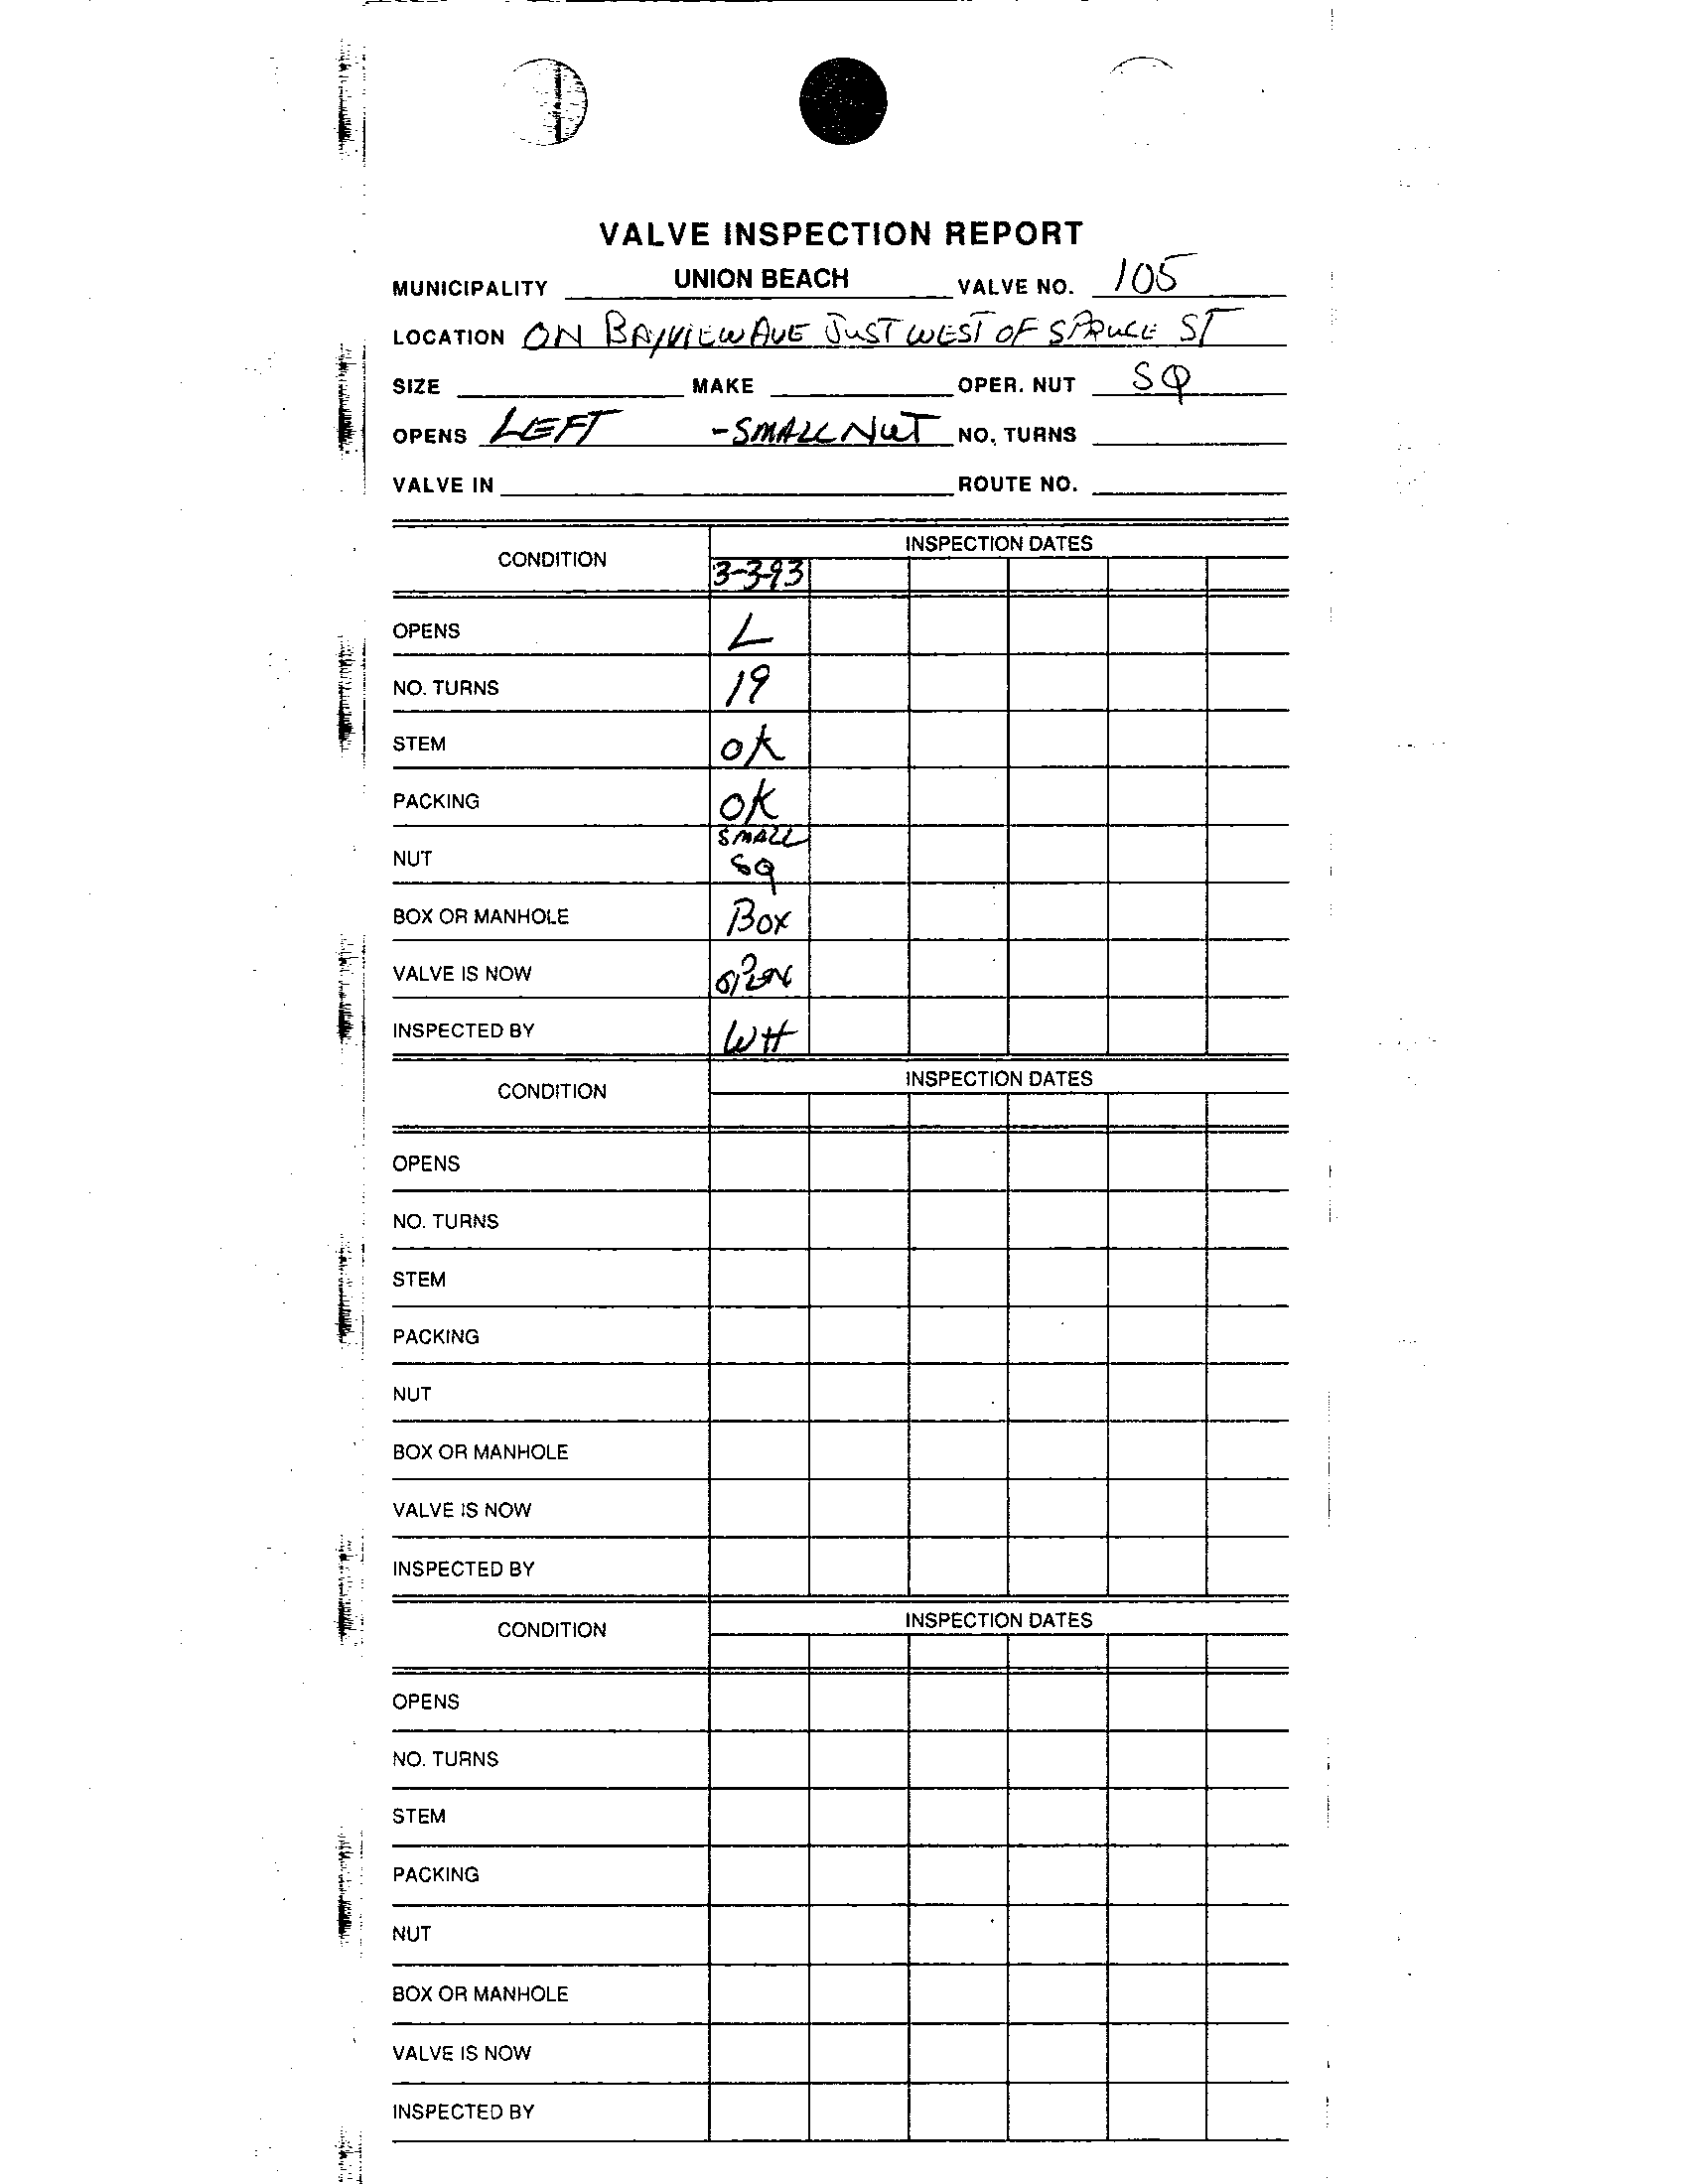 VALVE INSPECTION REPORT
MUNICIPALITY UNION BEACH VALVE NO. 105
LOCATION ON BAYVIEW AVE JUST WEST OF SPRUCE ST
SIZE MAKE OPER. NUT SQ
OPENS LEFT -SMALL NUT NO. TURNS
VALVE IN ROUTE NO.
CONDITION INSPECTION DATES
3-3-93
OPENS L
NO. TURNS 19
STEM OK
PACKING OK
NUT SMALL SQ
BOX OR MANHOLE BOX
VALVE IS NOW OPEN
INSPECTED BY WH
CONDITION INSPECTION DATES
OPENS
NO. TURNS
STEM
PACKING
NUT
BOX OR MANHOLE
VALVE IS NOW
INSPECTED BY
CONDITION INSPECTION DATES
OPENS
NO. TURNS
STEM
PACKING
NUT
BOX OR MANHOLE
VALVE IS NOW
INSPECTED BY